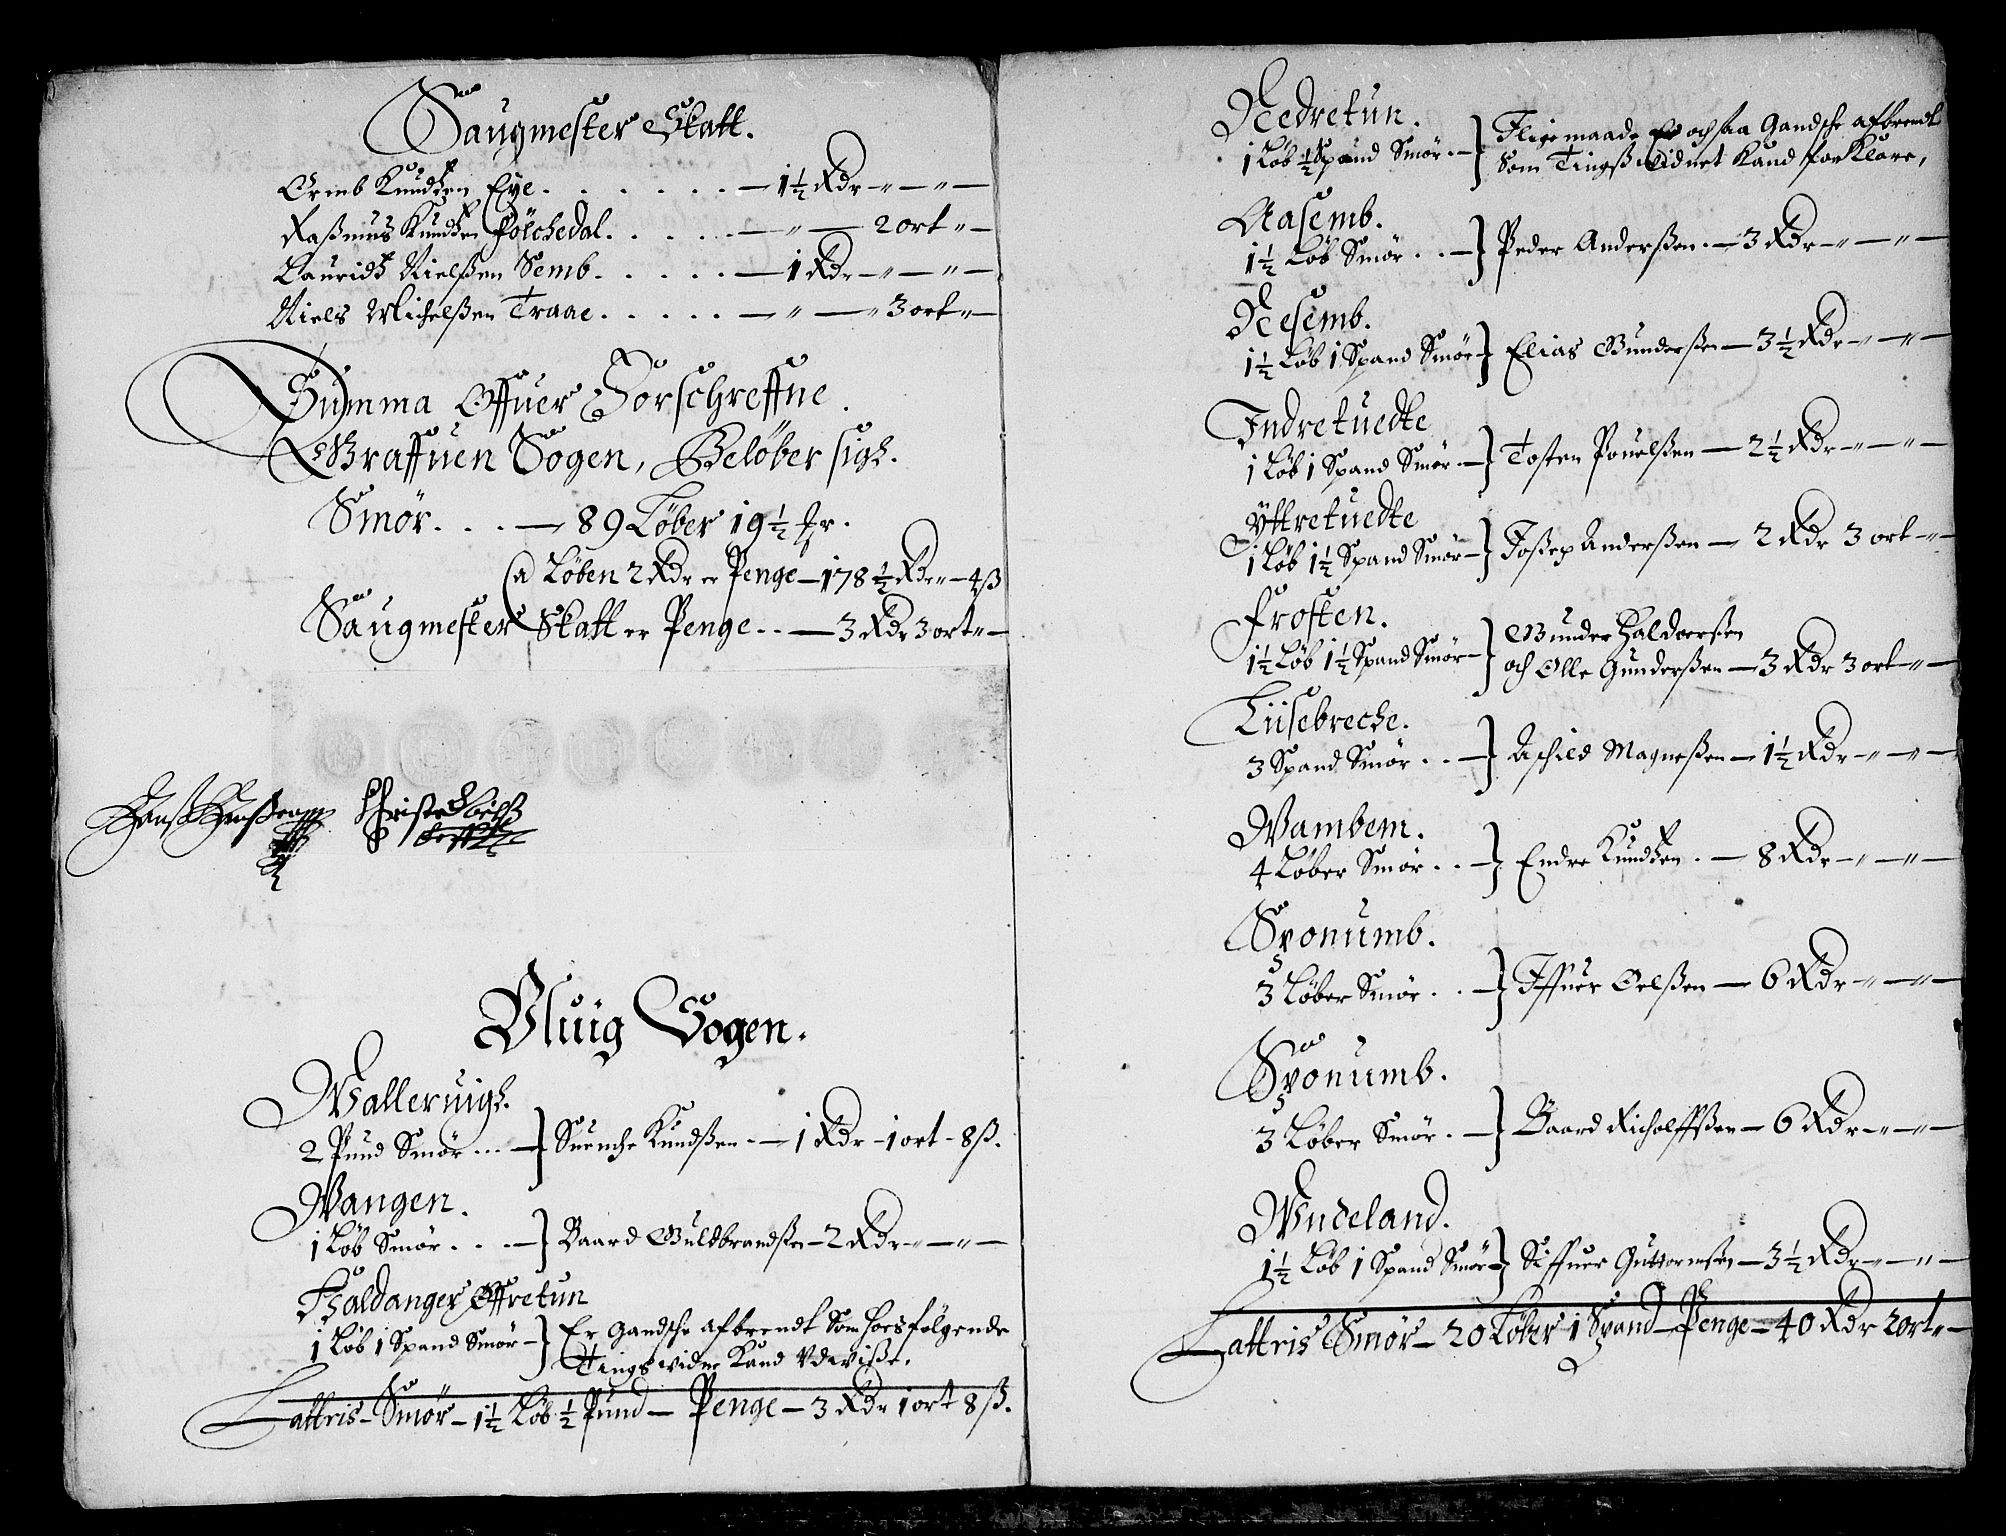 Saugmester Skatt.
Ormb Knudtzen Eye. . . . . . . — 1½ Rdr — „ — „ —
Raßmus Knudtzen Følchedal. . . . . — „ — 2 ort „ —
Lauridtz Nielßen Semb. . . . . — 1 Rdr — „ — „ —
Niels Michelßen Traae. . . . . — „ — „ 3 ort „ —
Summa Offuer Forschreffne
Graffuen Sogen, Beløber sigh.
Smør. . . . — 89 Løber 19½ .
a Løben 2 Rdr er Penge — 178½ Rdr „ — 4 ß
Saugmester Skatt er Penge . . — 3 Rdr 3 ort „ —
Hanß Hanßen
Christen
Vluig Sogen.
Walleruigh.
2 Pund Smør . . . — } Suenche Kundßen . — 1 Rdr — 1 ort — 8 ß.
Wangen.
1 Løb Smør. . . . — } Baard Guldbrandßen — 2 Rdr — „ — „ —
Haldanger Offretun
1 Løb 1 Spand Smør — } Er Gandsche afbrendt Som hoesfølgende
Tingswidne Kand Vdwiße.
Lattris — Smør — 1½ Løb ½ Pund — Penge — 3 Rdr 1 ort 8 ß.
Nedretun.
1 Løb ½ Spand Smør . — } I lige maade Er och saa Gandsche afbrendt
Som Tingß Widnet Kand forklare,
Aasemb.
1½ Løb Smør . . — } Peder Anderßen . — 3 Rdr — „ — „ —
Nesemb.
1½ Løb 1 Spand Smør } Elias Gunderßen — 3½ Rdr — „ — „ —
Indretuedte
1 Løb 1 Spand Smør . — } Tosten Pouelßen — 2½ Rdr — „ — „ —
Yttretuedte
1 Løb 1½ Spand Smør — } Joßep Anderßen — 2 Rdr 3 ort — „ —
Frosten.
1½ Løb 1½ Spand Smør — } Gunder Haldverßen
och Olle Gunderßen — 3 Rdr 3 ort — „ —
Liisebreche.
3 Spand Smør . . — } Aschild Magneßen — 1½ Rdr — „ — „ —
Wambem.
4 Løber Smør . . — } Endre Kundtzen . — 8 Rdr — „ — „ —
Sponumb.
3 Løber Smør . . — } Iffuer Oelßen — 6 Rdr — „ — „ —
Sponumb.
3 Løber Smør . — } Baard Richolffßen — 6 Rdr — „ — „ —
Wndeland.
1½ Løb 1 Spand Smør } Siffuer Guttormßen — 3½ Rdr — „ — „ —
Lattris Smør — 20 Løber 1 Spand — Penge — 40 Rdr 2 ort „ —